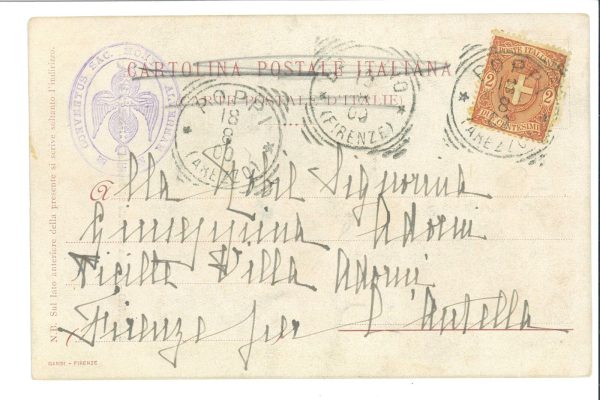 CARTOLINA POSTALE ITALIANA
(CARTE POSTALE D'ITALIE)
CONVENTUS SAC.
POPPI
18
8
00
(AREZZO)
13
(FIRENZE)
POPPI
8
(AREZZO)
POSTE ITALIANE
2 2
DUE CENTESIMI
Alla Nobil Signorina
Giuseppina Adorni
Villa Adorni
Firenze per l'Antella
N. B. Sul lato anteriore della presente si scrive soltanto l'indirizzo.
GARGI - FIRENZE